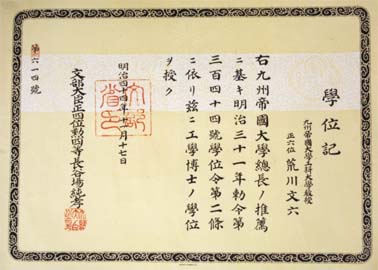 學位記
九州帝國大學工科大學敎授
正六位 荒川文六
右九州帝國大學總長ノ推薦
ニ基キ明治三十一年勅令第
三百四十四號學位令第二條
ニ依リ茲ニ工學博士ノ學位
ヲ授ク
明治四十四年 月十七日
文部省印
文部大臣正四位勳四等長谷場純孝
第六一四號